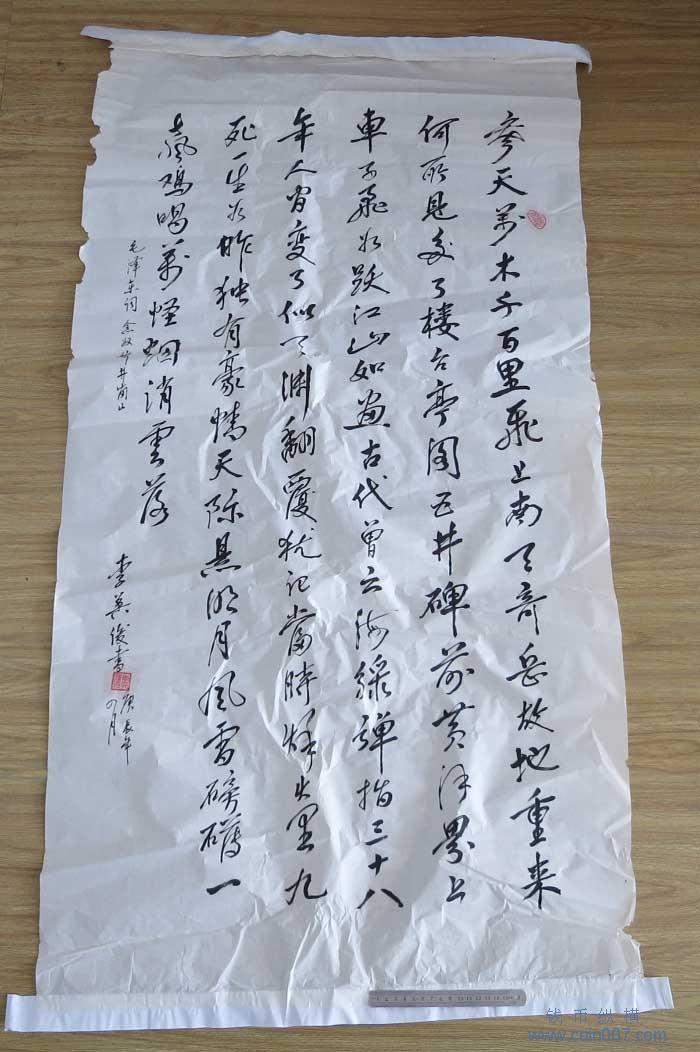 參天萬木千百里飛上南天奇岳故地重来
何所見多了楼台亭阁五井碑前黄洋界上
車子飛如跃江山如畫古代曾云海綠彈指三十八
年人间变了似天渊翻覆犹记當時烽火里九
死一生如昨独有豪情天际悬明月风雷磅礴一
声鸡唱萬怪烟消雲落
毛泽东词念奴娇井岗山
李英俊書
庚辰年
四月
钱币纵横
www.coin007.com